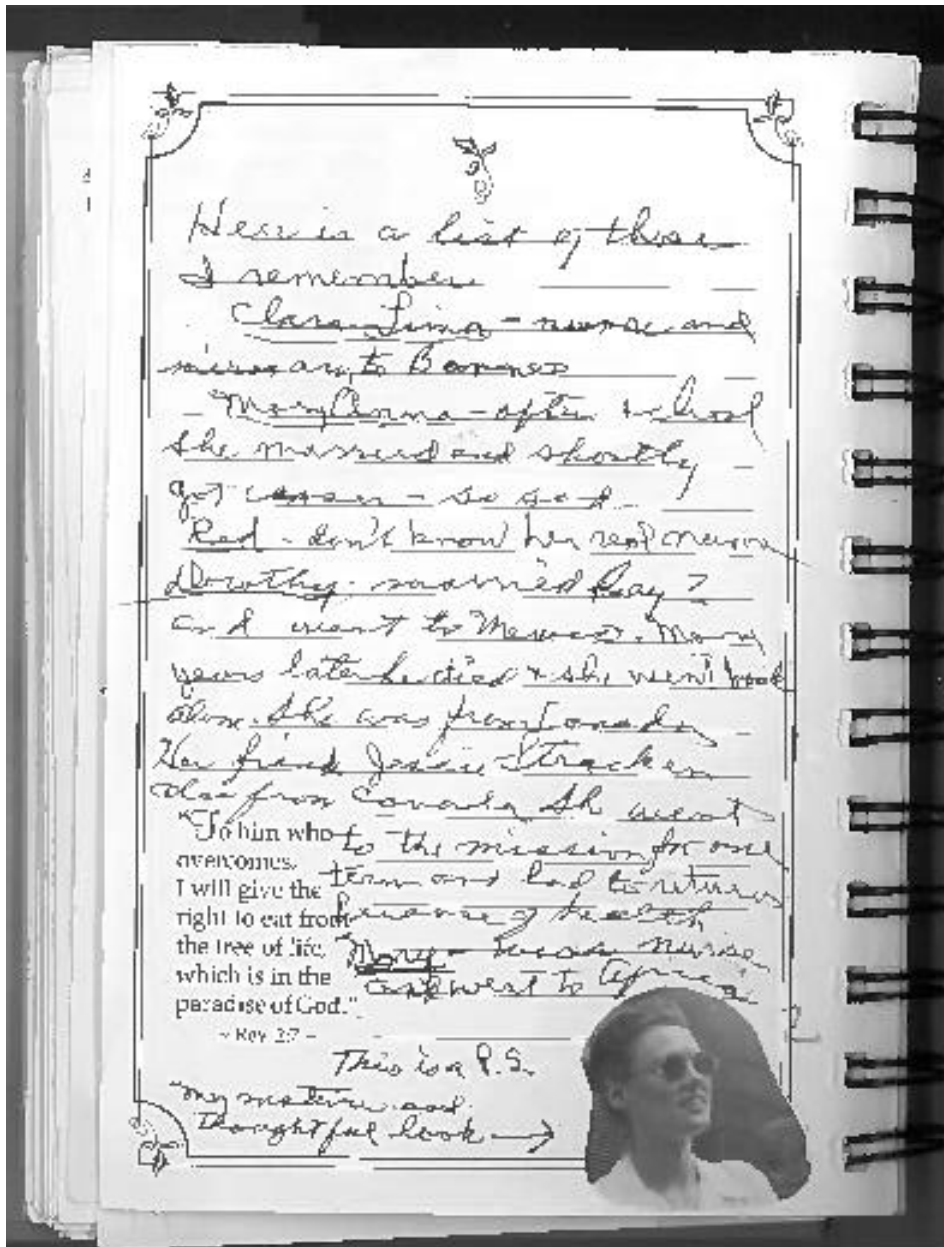 Here is a list of those
I remember
Clara Lima - nurse and
to Borneo
Mary Anna - after school
she married and shortly
got cancer - so sad
Red - don't know her real name
Dorothy - married Ray?
and went to Mexico. Many
years later he died & she went back
alone. She was from Canada
Her friend Jessie Stracken
also from Canada. She went
to the mission for one
term and had to return
because of health
Mary - was a nurse
and went to Africa
"To him who
overcomes,
I will give the
right to eat from
the tree of life,
which is in the
paradise of God."
~ Rev. 2:7 ~
This is a P.S.
My mature and
thoughtful look →